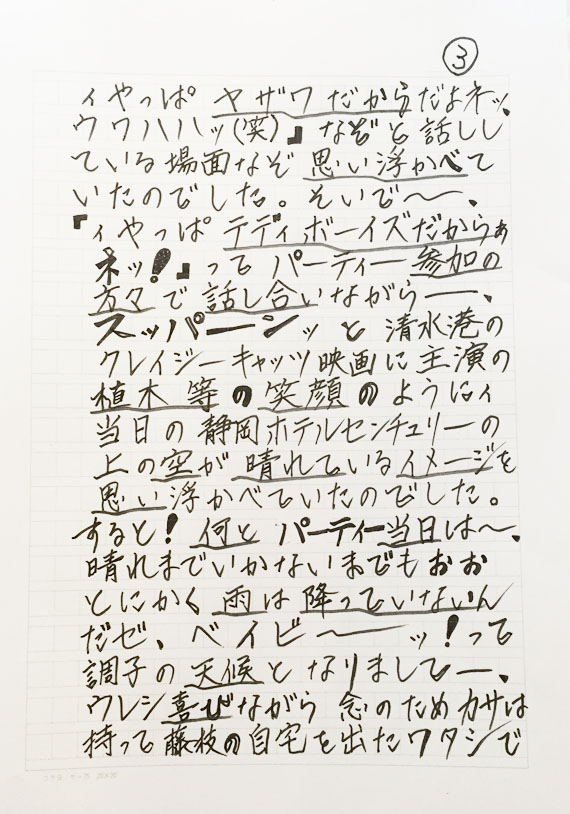 ③
ィやっぱ ヤザワだからだよネッ、
ウワハハハッ(笑)』なぞと話しし
ている場面なぞ思い浮かべて
いたのでした。そいで〜、
『ィやっぱテディボーイズだからぁ
ネッ!』ってパーティー参加の
方々で話し合いながらー、
スッパーンッと清水港の
クレイジーキャッツ映画に主演の
植木等の笑顔のようにィ
当日の静岡ホテルセンチュリーの
上の空が晴れているイメージを
思い浮かべていたのでした。
すると!何とパーティー当日は〜、
晴れまでいかないまでもおお
とにかく雨は降っていないん
だゼ、ベイビ〜ーッ!って
調子の天候となりましてー、
ウレシ喜びながら念のためカサは
持って藤枝の自宅を出たワタシで